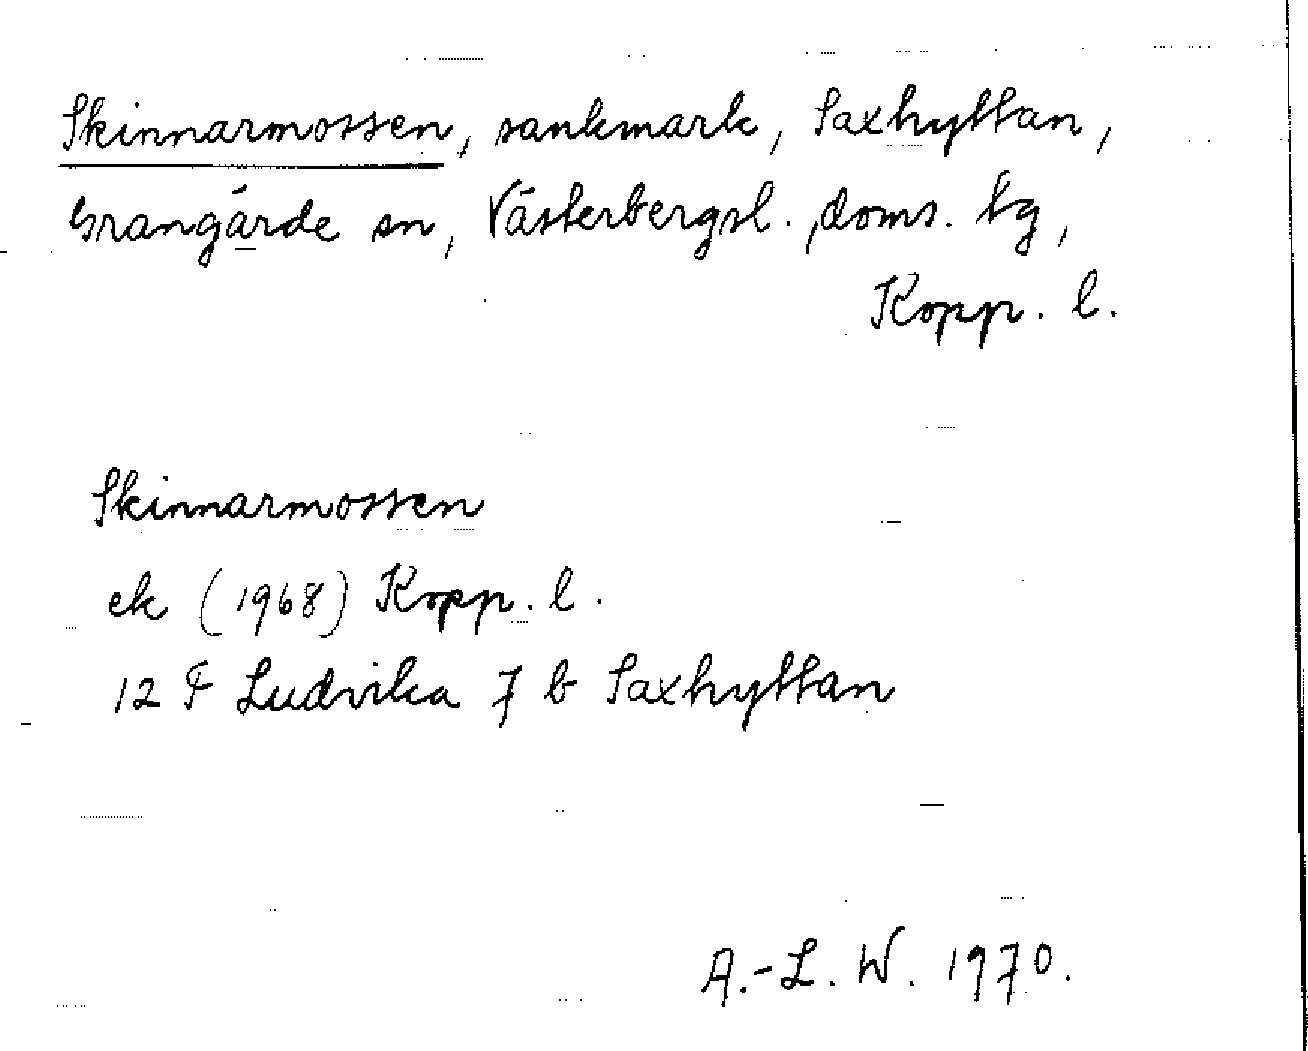 Skinnarmossen, sankmark, Saxhyttan,
Grangärde sn, Västerbergsl. doms. tg,
Kopp. l.
Skinnarmossen
ek (1968) Kopp. l.
12 F Ludvika 7 b Saxhyttan
A.-L. W. 1970.